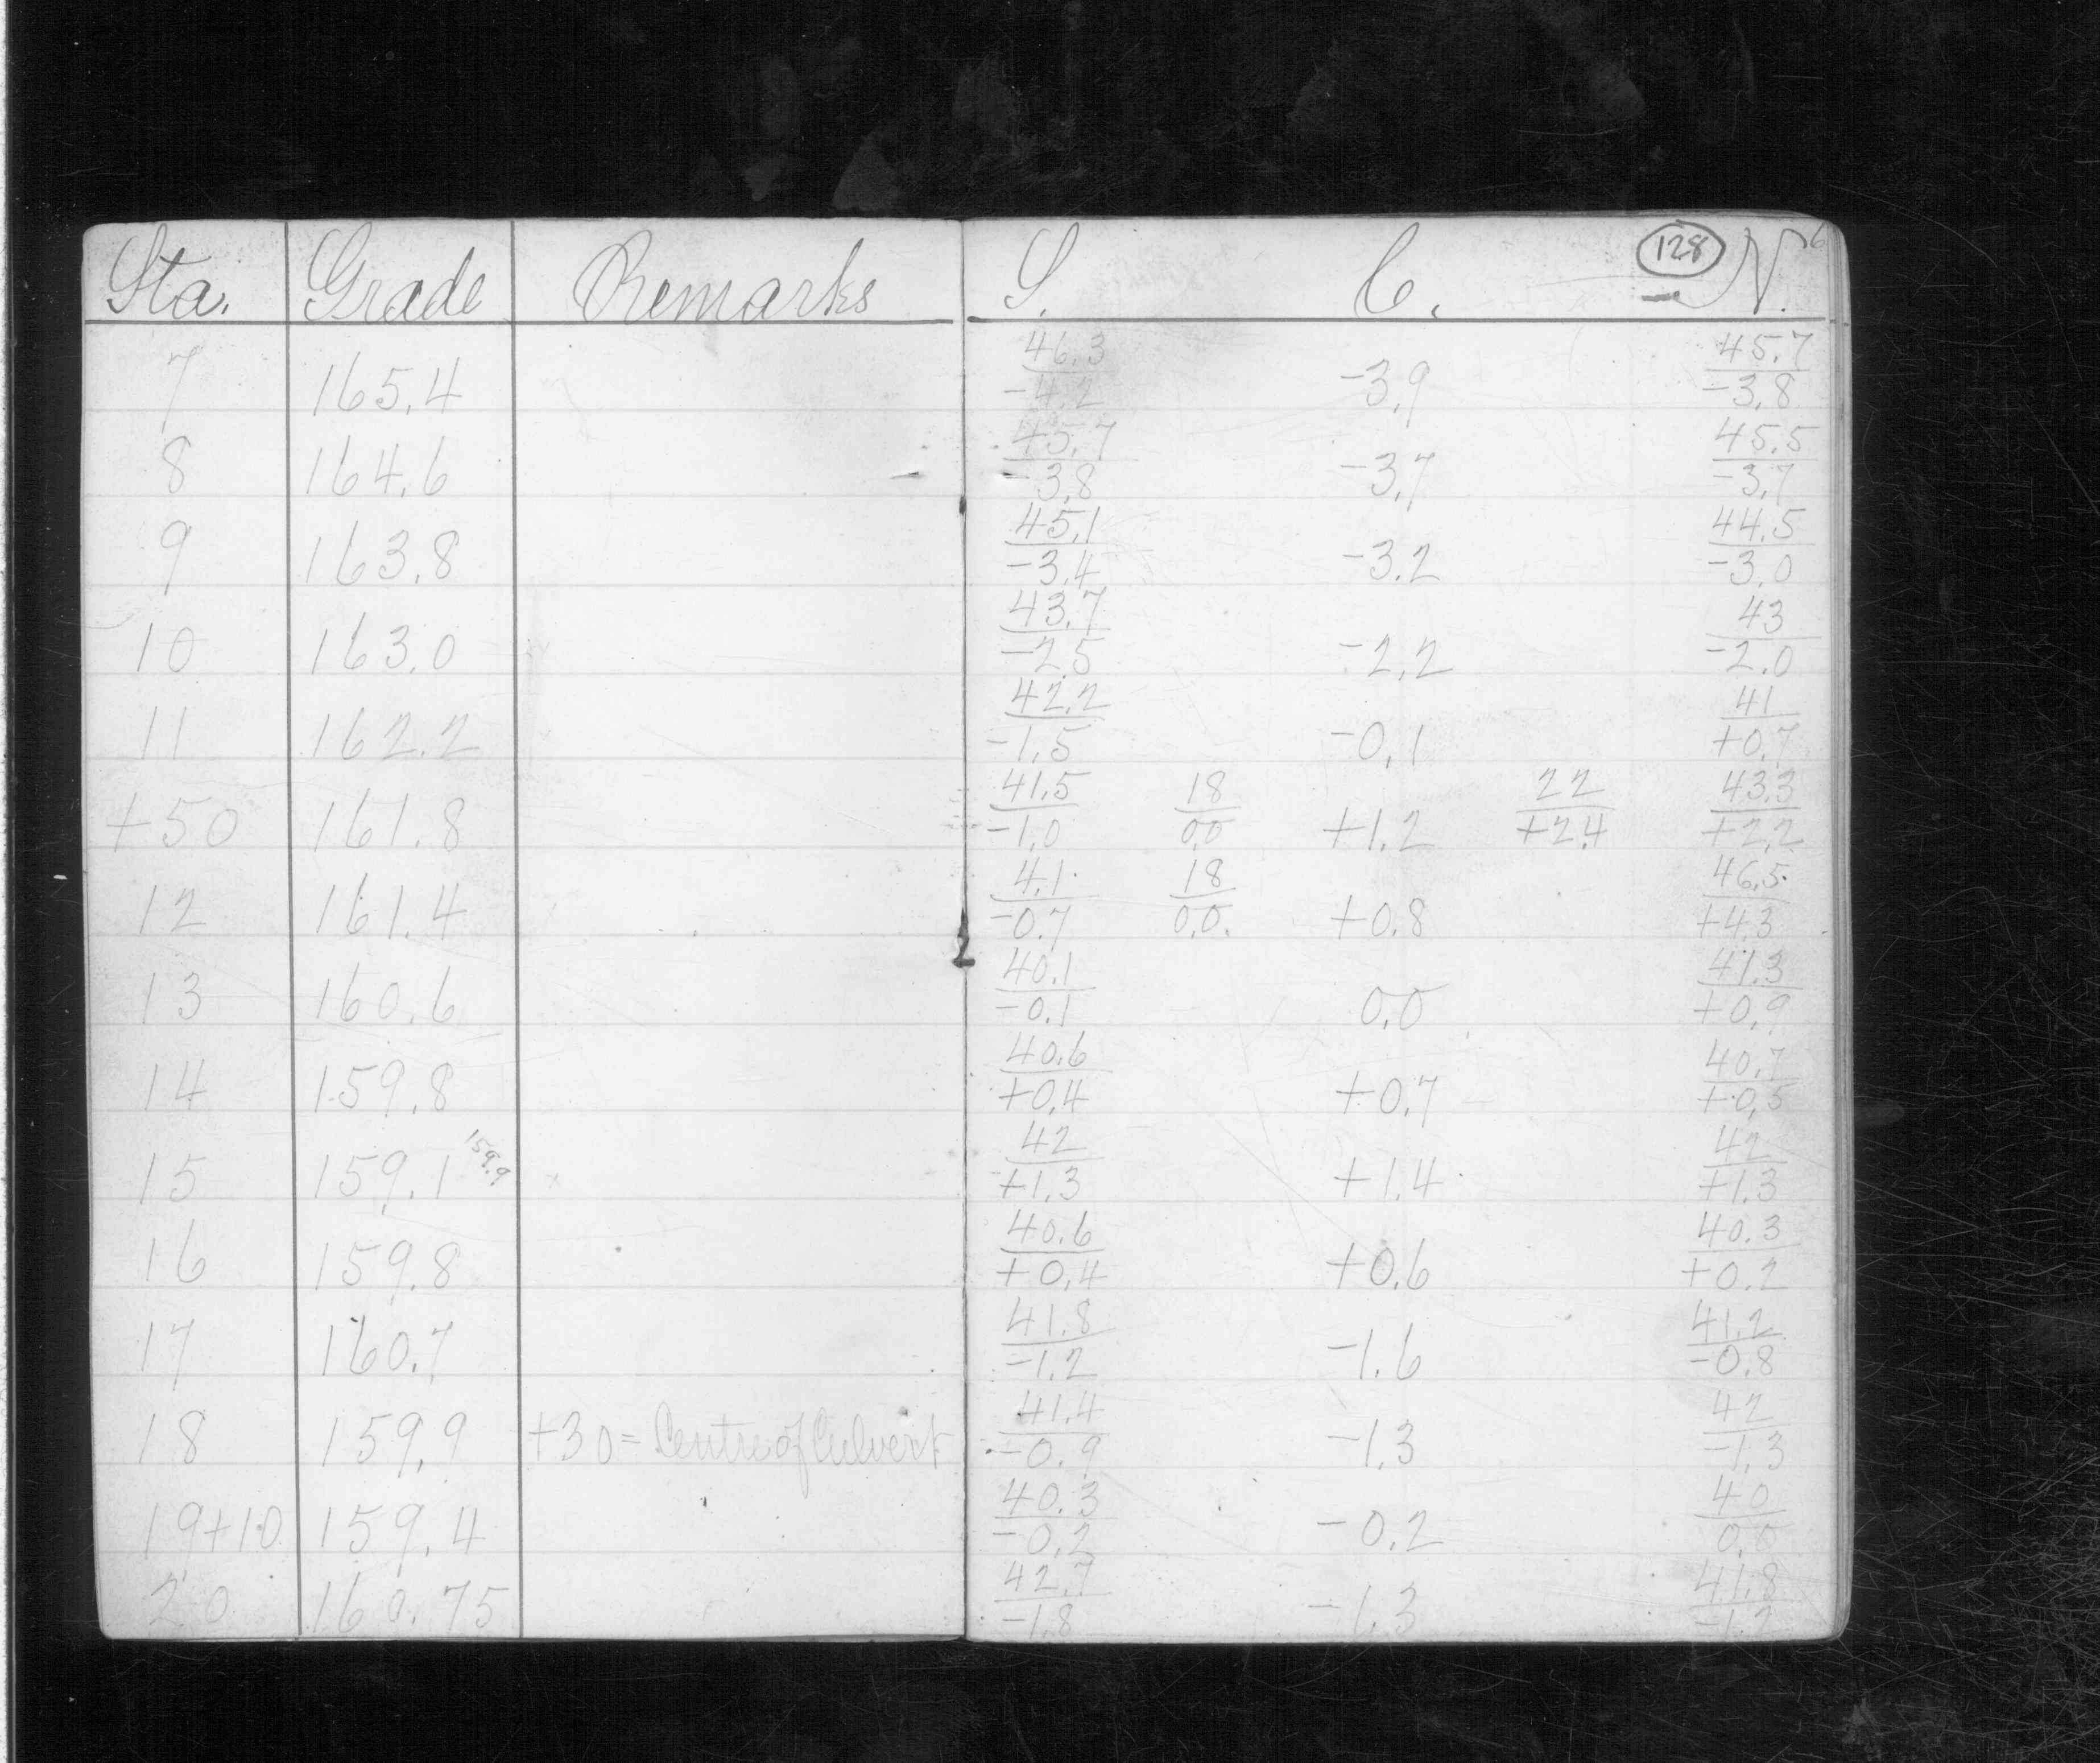 Sta. Grade Remarks S. C. 128 N. 6
46.3 45.7
7 165.4 -4.2 -3.9 -3.8
45.7 45.5
8 164.6 -3.8 -3.7 -3.7
45.1 44.5
9 163.8 -3.4 -3.2 -3.0
43.7 43
10 163.0 -2.5 -2.2 -2.0
42.2 41
11 162.2 -1.5 -0.1 +0.7
41.5 18 22 43.3
+50 161.8 -1.0 0.0 +1.2 +2.4 +2.2
4.1 18 46.5
12 161.4 -0.7 0.0. +0.8 +4.3
40.1 41.3
13 160.6 -0.1 0.0 +0.9
40.6 40.7
14 159.8 +0.4 +0.7 +0.5
159.9 42 42
15 159.1 +1.3 +1.4 +1.3
40.6 40.3
16 159.8 +0.4 +0.6 +0.2
41.8 41.2
17 160.7 -1.2 -1.6 -0.8
41.4 42
18 159.9 +30 = Centre of Culvert -0.9 -1.3 -1.3
40.3 40
19+10 159.4 -0.2 -0.2 0.0
42.7 41.8
20 160.75 -1.8 -1.3 -1.2